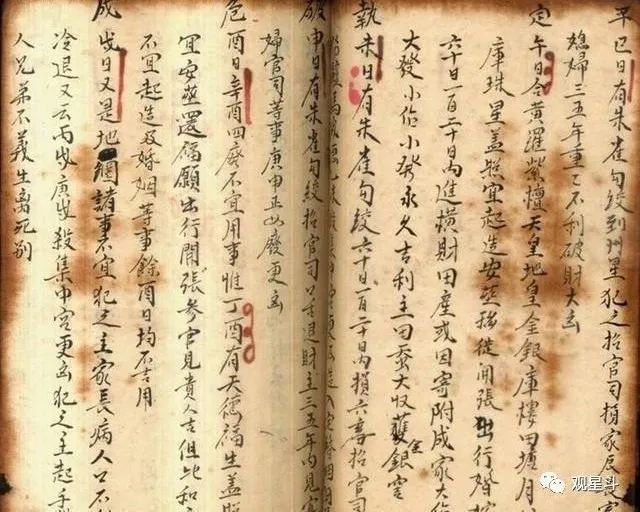 平巳日有朱雀勾絞到州星犯之招官司損家長
媳婦三五年重々不利破財大凶
定午日合黃羅紫檀天皇地皇金銀庫樓田塘月
庫珠星盖照宜起造安葬移徙開張出行婚
六十日一百二十日內進橫財田產或因寄附成家大作
大發小作小發永久吉利主田蚕大收獲金銀
執未日有朱雀勾絞六十日一百二十日內損六畜招官司
破申日有朱雀勾絞招官司口舌退財主三五年內見
婦官司等事庚申正四廢更凶
危酉日辛酉四廢不宜用事惟丁酉有天德福生盖照
宜安葬還福願出行開張參官見貴人吉但比和
不宜起造及婚姻等事餘酉日均不吉用
成戌日又是地網諸事不宜犯之主家長病人口不
冷退又云丙戌庚戌殺集中宮更凶犯之主起手
人兄弟不義生離死别
观星斗